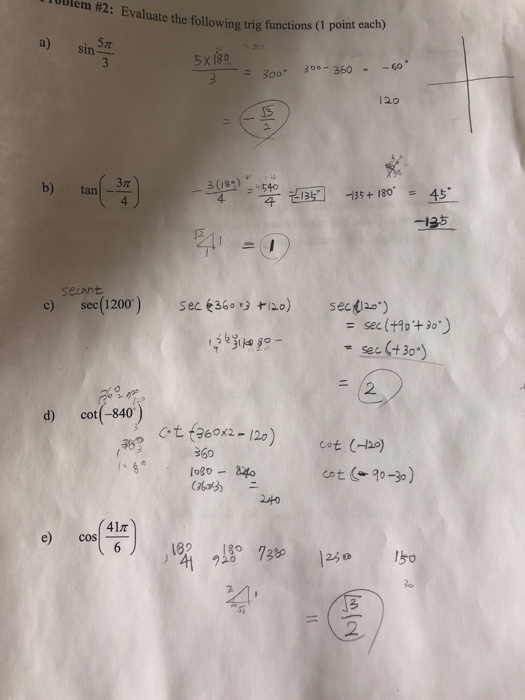 #2: Evaluate the following trig functions (1 point each)
a) sin 5π/3
5×180/3 = 300° 300-360 = -60°
120
= -√3/2
b) tan(-3π/4)
-3(180)/4 = -540/4 = -135° -135+180° = 45°
-135
√2 1 1 = 1
secant
c) sec(1200°) sec(360×3+120) sec(120°)
= sec(+90°+30°)
= sec(+30°)
= 2
d) cot(-840°) cot(-360×2-120) cot(-120)
360
1080 - 840 cot(-90-30)
(360×3) =
240
e) cos(41π/6)
180 180 7380 150
41
= √3/2